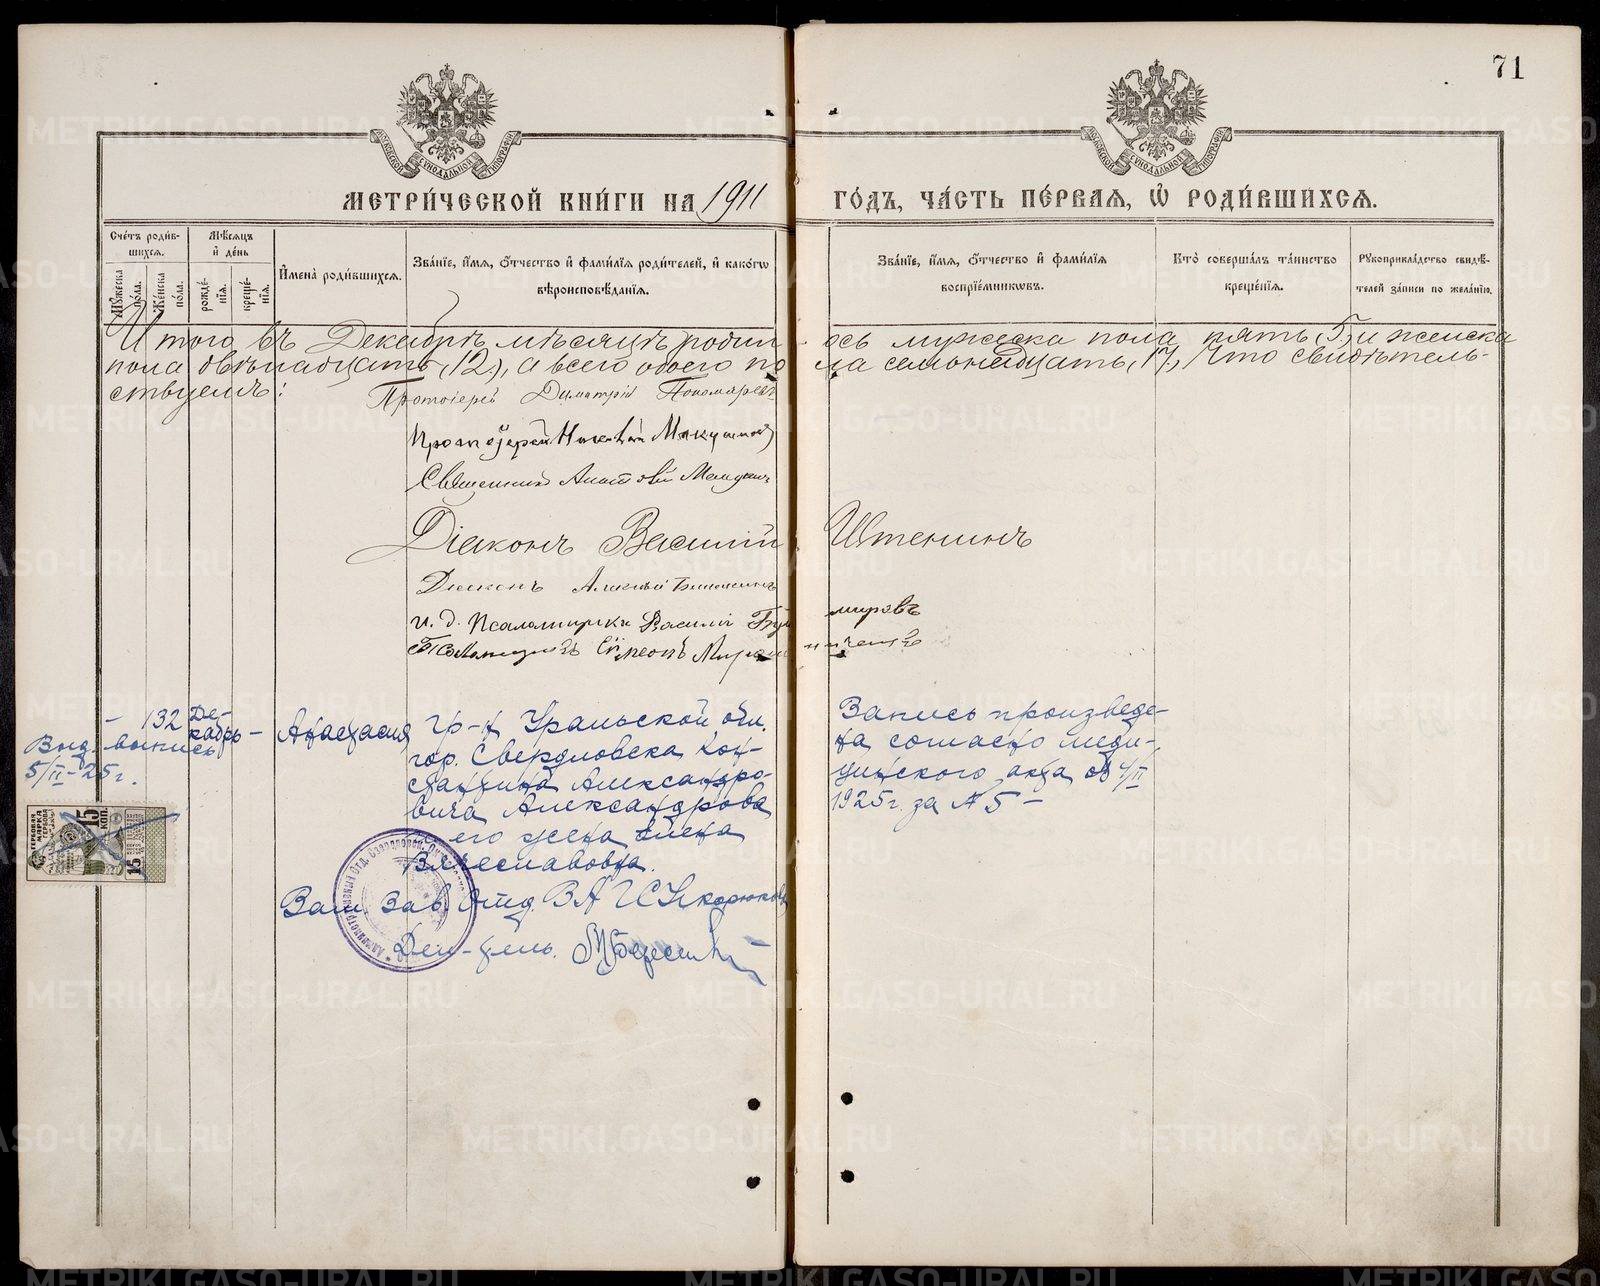 71
МЕТРИ́ЧЕСКОЙ КНИ́ГИ НА 1911 ГО́ДЪ, ЧА́СТЬ ПЕ́РВАЯ, Ѡ҆ РОДИ́ВШИХСЯ.
Сче́тъ роди́в-
шихся.
Му́жеска по́ла.
Же́нска по́ла.
Мѣ́сяцъ и҆ де́нь
рожде́-
нїя.
креще́-
нїя.
И҆мена̀ роди́вшихся.
Зва́нїе, и҆́мя, ѻ҆́тчество и҆ фами́лїя роди́телей, и҆ како́гѡ
вѣроисповѣ́данїя.
Зва́нїе, и҆́мя, ѻ҆́тчество и҆ фами́лїя
воспрїе́мникѡвъ.
Кто̀ соверша́лъ та́инство
креще́нїя.
Рукоприкла́дство свидѣ́-
телей за́писи по жела́нїю.
Итого въ Декабрѣ мѣсяцѣ родилось мужеска пола пять, (5), и женска
пола двѣнадцать, (12), а всего обоего пола семнадцать, (17), Что свидѣтель-
ствуемъ:
Протоіерей Димитрій Пономаревъ
Протоіерей
Священникъ Анатолій
Діаконъ Василій Штенинъ
Діаконъ Алексѣй
и. д. Псаломщика Василій
Псаломщикъ Симеонъ
- 132 Де-
кабрь - Анастасия
Выд. выпись
5/II-25 г.
гр-н Уральской обл.
гор. Свердловска Кон-
стантина Александро-
вича Александрова
его жена Елена
Вячеславовна.
Запись произведе-
на согласно меди-
цинского акта от 4/II
1925 г. за № 5 -
ГЕРБОВАЯ МАРКА
15 КОП.
15
Зав. Отд. ЗАГС
Дел-тель.
METRIKI.GASO-URAL.RU